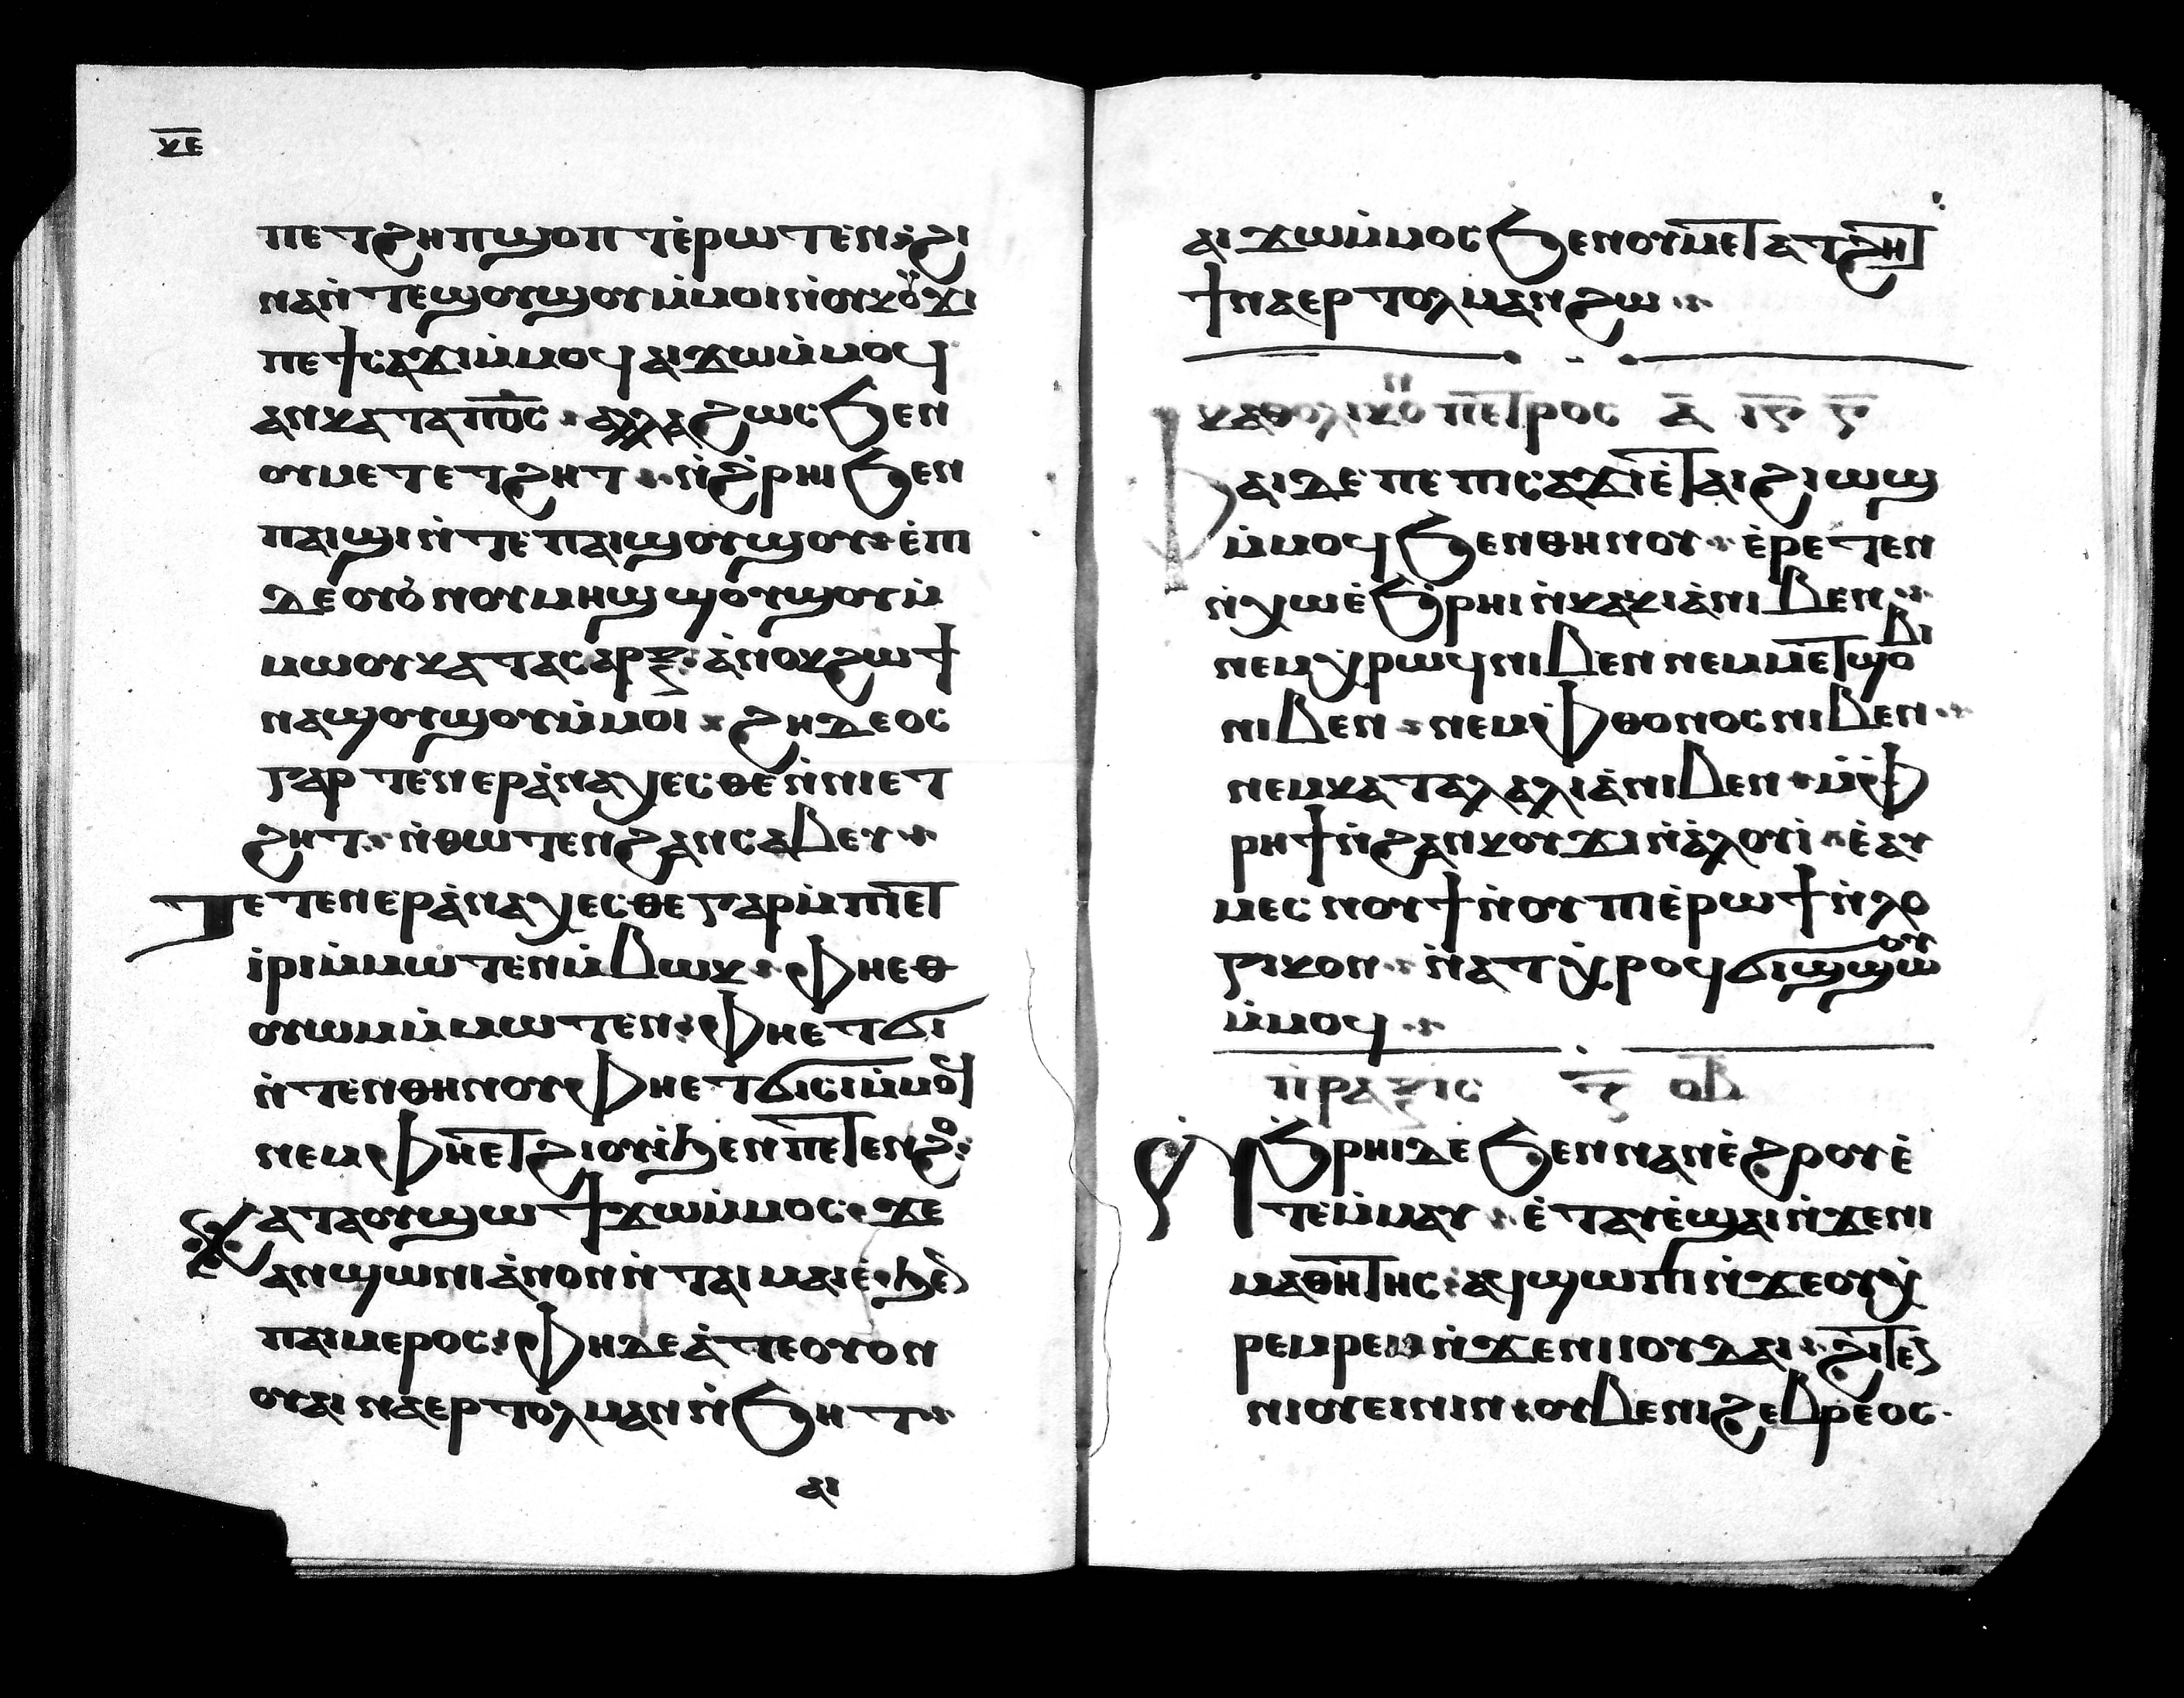 ⲕⲉ
ⲡⲉⲧϩⲏⲡ ϣⲟⲡⲧ ⲉ̇ⲣⲱⲧⲉⲛ ϩⲓ
ⲛⲁ ⲛ̇ⲧⲉϣⲟⲩϣⲟⲩ ⲙ̇ⲙⲟⲓ ⲛ̇ⲟⲩⲕⲟⲩϫⲓ
ⲡⲉϯⲥⲁϫⲓ ⲙ̇ⲙⲟϥ ⲁⲓϫⲱ ⲙ̇ⲙⲟϥ
ⲁⲛ ⲕⲁⲧⲁ ⲡⲟ̅ⲥ̅ ⲁⲗⲗⲁ ϩⲱⲥ ϧⲉⲛ
ⲟⲩⲙⲉⲧⲉⲧϩⲏⲧ ⲛ̇ϩ̇ⲣⲏⲓ ϧⲉⲛ
ⲡⲁⲓϣⲓ ⲛ̇ⲧⲉ ⲡⲁⲓϣⲟⲩϣⲟⲩ ⲉ̇ⲡⲓ
ⲇⲉ ⲟⲩⲟⲛ ⲟⲩⲙⲏϣ ϣⲟⲩϣⲟⲩ ⲙ̇
ⲙⲱⲟⲩ ⲕⲁⲧⲁ ⲥⲁⲣⲝ ⲁ̇ⲛⲟⲕ ϩⲱ ϯ
ⲛⲁϣⲟⲩϣⲟⲩ ⲙ̇ⲙⲟⲓ ϩⲏⲇⲉⲟⲥ
ⲅⲁⲣ ⲧⲉⲛⲉⲣⲁ̇ⲛⲁⲭⲉⲥⲑⲉ ⲛ̇ⲛⲓⲉⲧ
ϩⲏⲧ ⲛ̇ⲑⲱⲧⲉⲛ ϩⲁⲛⲥⲁⲃⲉⲩ
ⲧⲉⲧⲉⲛⲉⲣⲁ̇ⲛⲁⲭⲉⲥⲑⲉ ⲅⲁⲣ ⲙ̇ⲡⲓⲉⲧ
ⲓ̇ⲣⲓ ⲙ̇ⲙⲱⲧⲉⲛ ⲙ̇ⲃⲱⲕ ⲫⲏⲉⲑ
ⲟⲩⲱⲙ ⲙ̇ⲙⲱⲧⲉⲛ ⲫⲏⲉⲧϭⲓ
ⲛ̇ⲧⲉⲛⲑⲏⲛⲟⲩ ⲫⲏⲉⲧϭⲓⲥⲓ ⲙ̇ⲙⲟϥ
ⲛⲉⲙ ⲫⲏⲉⲧϩⲓⲟⲩⲓ̇ ϧⲉⲛ ⲡⲉⲧⲉⲛϩⲟ
ⲕⲁⲧⲁ ⲟⲩϣⲱϣ ϯϫⲱ ⲙ̇ⲙⲟⲥ ϫⲉ
ⲁⲛϣⲱⲛⲓ ⲁ̇ⲛⲟⲛ ⲛ̇ⲧⲁⲓⲙⲁⲓⲉ̇ ϧⲉⲛ
ⲡⲁⲓⲙⲉⲣⲟⲥ ⲫⲏ ⲇⲉ ⲁ̇ⲧⲉ ⲟⲩⲟⲛ
ⲟⲩⲁⲓ ⲛⲁⲉⲣⲧⲟⲗⲙⲁⲛ ⲛ̇ϧⲏⲧ
ⲁⲓ
ⲁⲓϫⲱ ⲙ̇ⲙⲟⲥ ϧⲉⲛ ⲟⲩⲙⲉⲧⲁⲧϩⲏⲧ
ϯⲛⲁⲉⲣⲧⲟⲗⲙⲁⲛ ϩⲱ
ⲕⲁⲑⲟⲗⲓⲕⲟ ⲡⲉⲧⲣⲟⲥ ⲁ̅ ⲓⲋ̅ ⲋ̅
ⲫⲁⲓ ⲇⲉ ⲡⲉ ⲡⲓⲥⲁϫⲓ ⲉ̇ⲧⲁⲓϩⲓⲱⲓϣ
ⲙ̇ⲙⲟϥ ϧⲉⲛ ⲑⲏⲛⲟⲩ ⲉ̇ⲣⲉⲧⲉⲛ
ⲛ̇ⲭⲱ ⲉ̇ϧⲣⲏⲓ ⲛ̇ⲕⲁⲕⲓⲁ̇ ⲛⲓⲃⲉⲛ
ⲛⲉⲙ ⲭⲣⲱϥ ⲛⲓⲃⲉⲛ ⲛⲉⲙ ⲙⲉⲧϣⲟⲃⲓ
ⲛⲓⲃⲉⲛ ⲛⲉⲙ ⲫⲑⲟⲛⲟⲥ ⲛⲓⲃⲉⲛ
ⲛⲉⲙ ⲕⲁⲧⲁⲗⲁⲗⲓⲁ̇ ⲛⲓⲃⲉⲛ ⲙ̇ⲫ
ⲣⲏϯ ⲛ̇ϩⲁⲛⲕⲟⲩϫⲓ ⲛ̇ⲁ̇ⲗⲟⲩⲓ̇ ⲉ̇ⲁⲩ
ⲙⲉⲥ ⲛⲟⲩ ϯⲛⲟⲩ ⲡⲓⲉ̇ⲣⲱϯ ⲛ̇ⲗⲟ
ⲅⲓⲕⲟⲛ ⲛ̇ⲁⲧⲭ̇ⲣⲟϥ ϭⲓϣϣⲱⲟⲩ
ⲙ̇ⲙⲟϥ
ⲡ̇ⲣⲁⲝⲓⲥ ⲅ̅ ⲟⲃ̅
ⲛ̇ϧⲣⲏⲓ ⲇⲉ ϧⲉⲛ ⲛⲁⲛⲉ̇ϩⲟⲟⲩ ⲉ̇
ⲧⲉⲙ̇ⲙⲁⲩ ⲉ̇ⲧⲁⲩⲉ̇ϣⲁⲓ ⲛ̇ϫⲉ ⲛⲓ
ⲙⲁⲑⲏⲧⲏⲥ ⲁϥϣⲱⲡⲓ ⲛ̇ϫⲉ ⲟⲩⲭ̇
ⲣⲉⲙⲣⲉⲙ ⲛ̇ϫⲉ ⲛⲓⲓⲟⲩⲇⲁⲓ ϩⲓⲧⲉⲛ
ⲛⲓⲟⲩⲉⲓⲛⲓⲛ ⲟⲩⲃⲉ ⲛⲓϩⲉⲃⲣⲉⲟⲥ